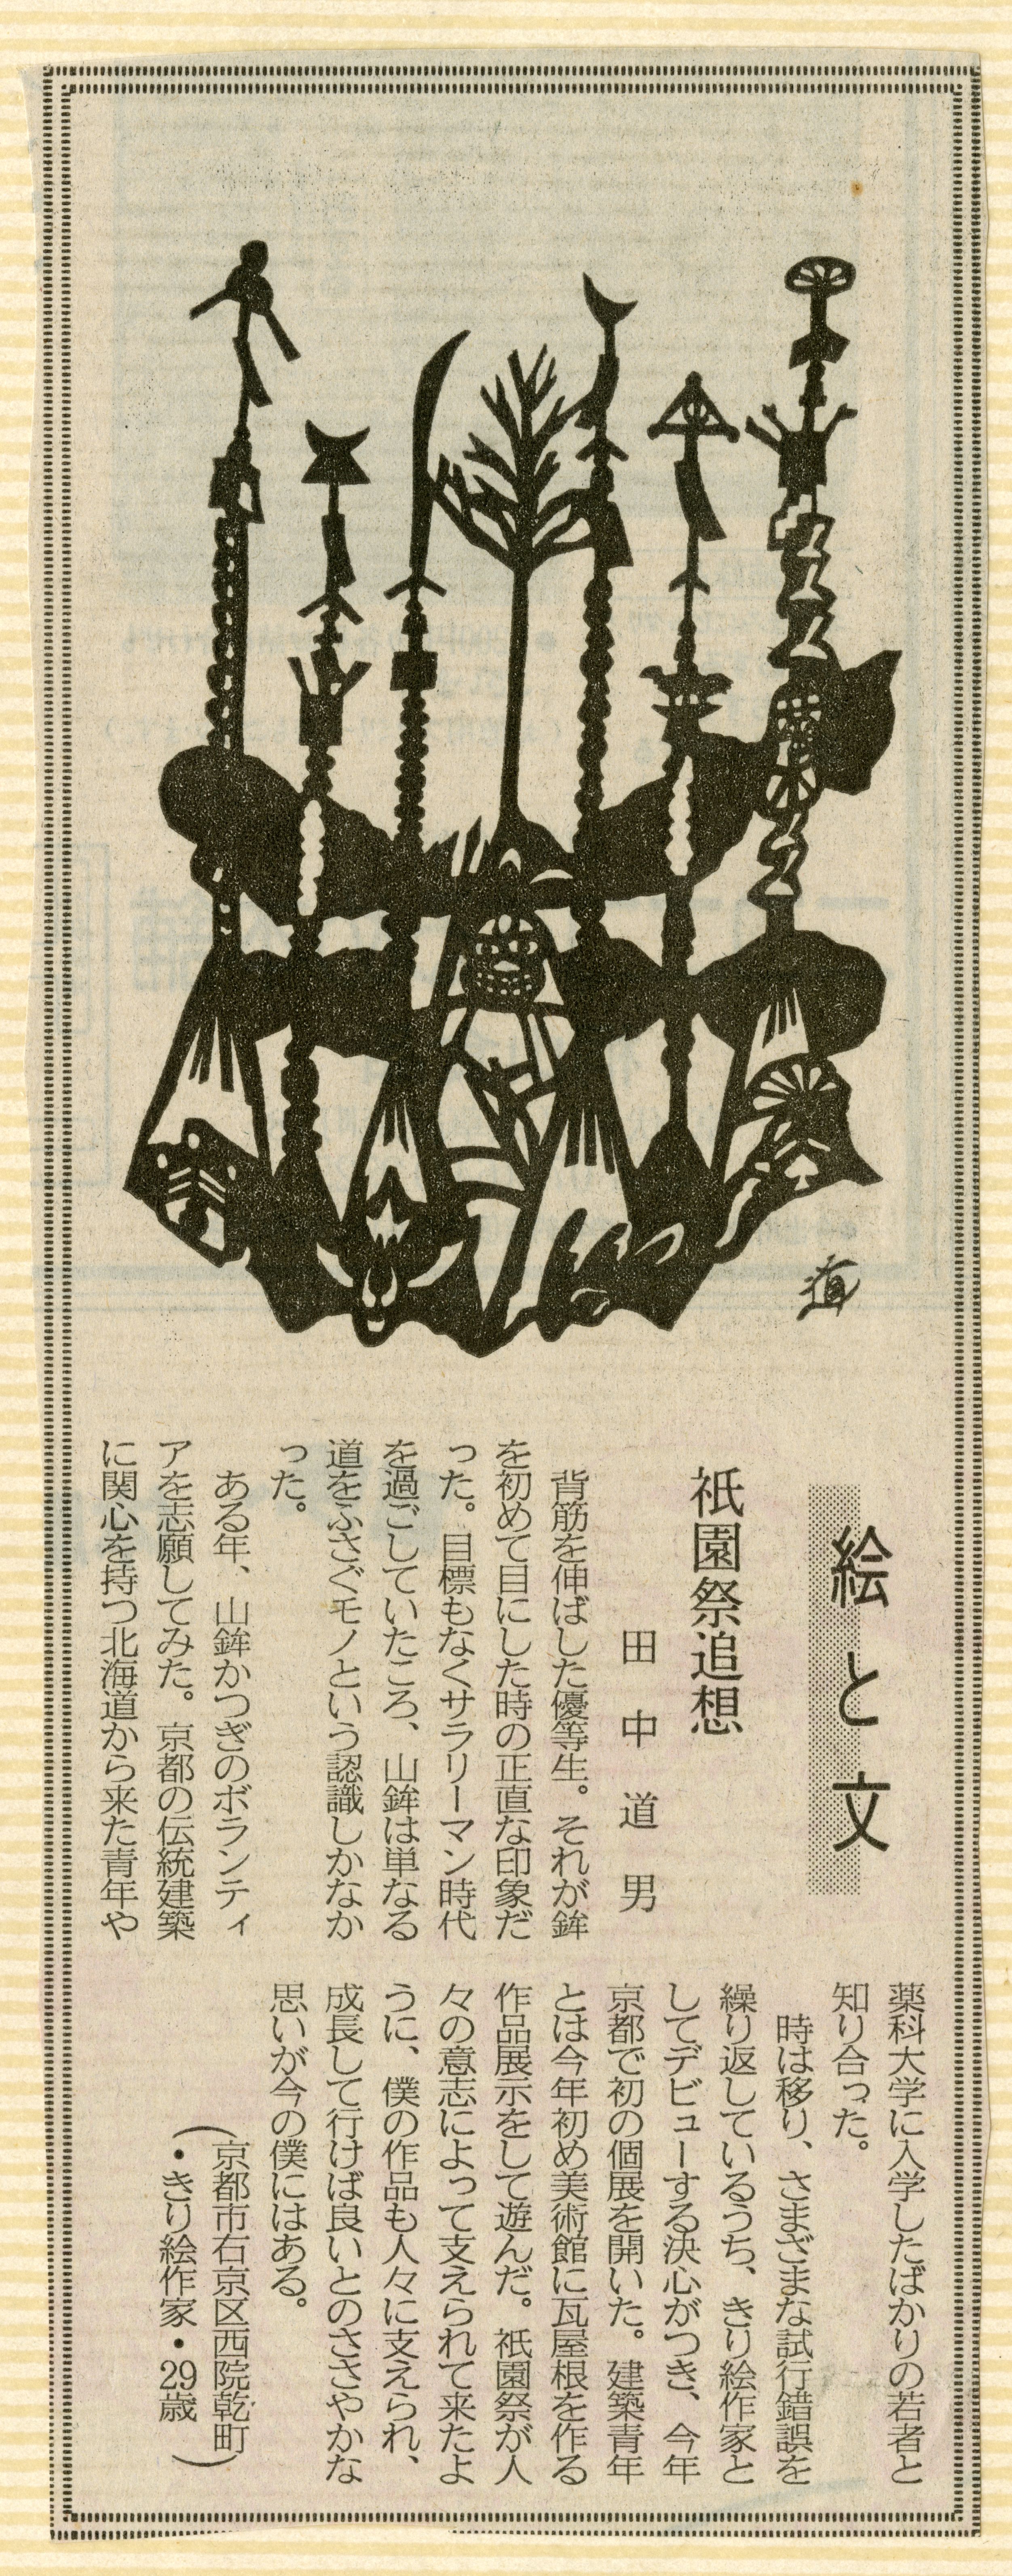 道
絵と文
祇園祭追想
田中道男
背筋を伸ばした優等生。それが鉾
を初めて目にした時の正直な印象だ
った。目標もなくサラリーマン時代
を過ごしていたころ、山鉾は単なる
道をふさぐモノという認識しかなか
った。
ある年、山鉾かつぎのボランティ
アを志願してみた。京都の伝統建築
に関心を持つ北海道から来た青年や
薬科大学に入学したばかりの若者と
知り合った。
時は移り、さまざまな試行錯誤を
繰り返しているうち、きり絵作家と
してデビューする決心がつき、今年
京都で初の個展を開いた。建築青年
とは今年初め美術館に瓦屋根を作る
作品展示をして遊んだ。祇園祭が人
々の意志によって支えられて来たよ
うに、僕の作品も人々に支えられ、
成長して行けば良いとのささやかな
思いが今の僕にはある。
（京都市右京区西院乾町
・きり絵作家・29歳）